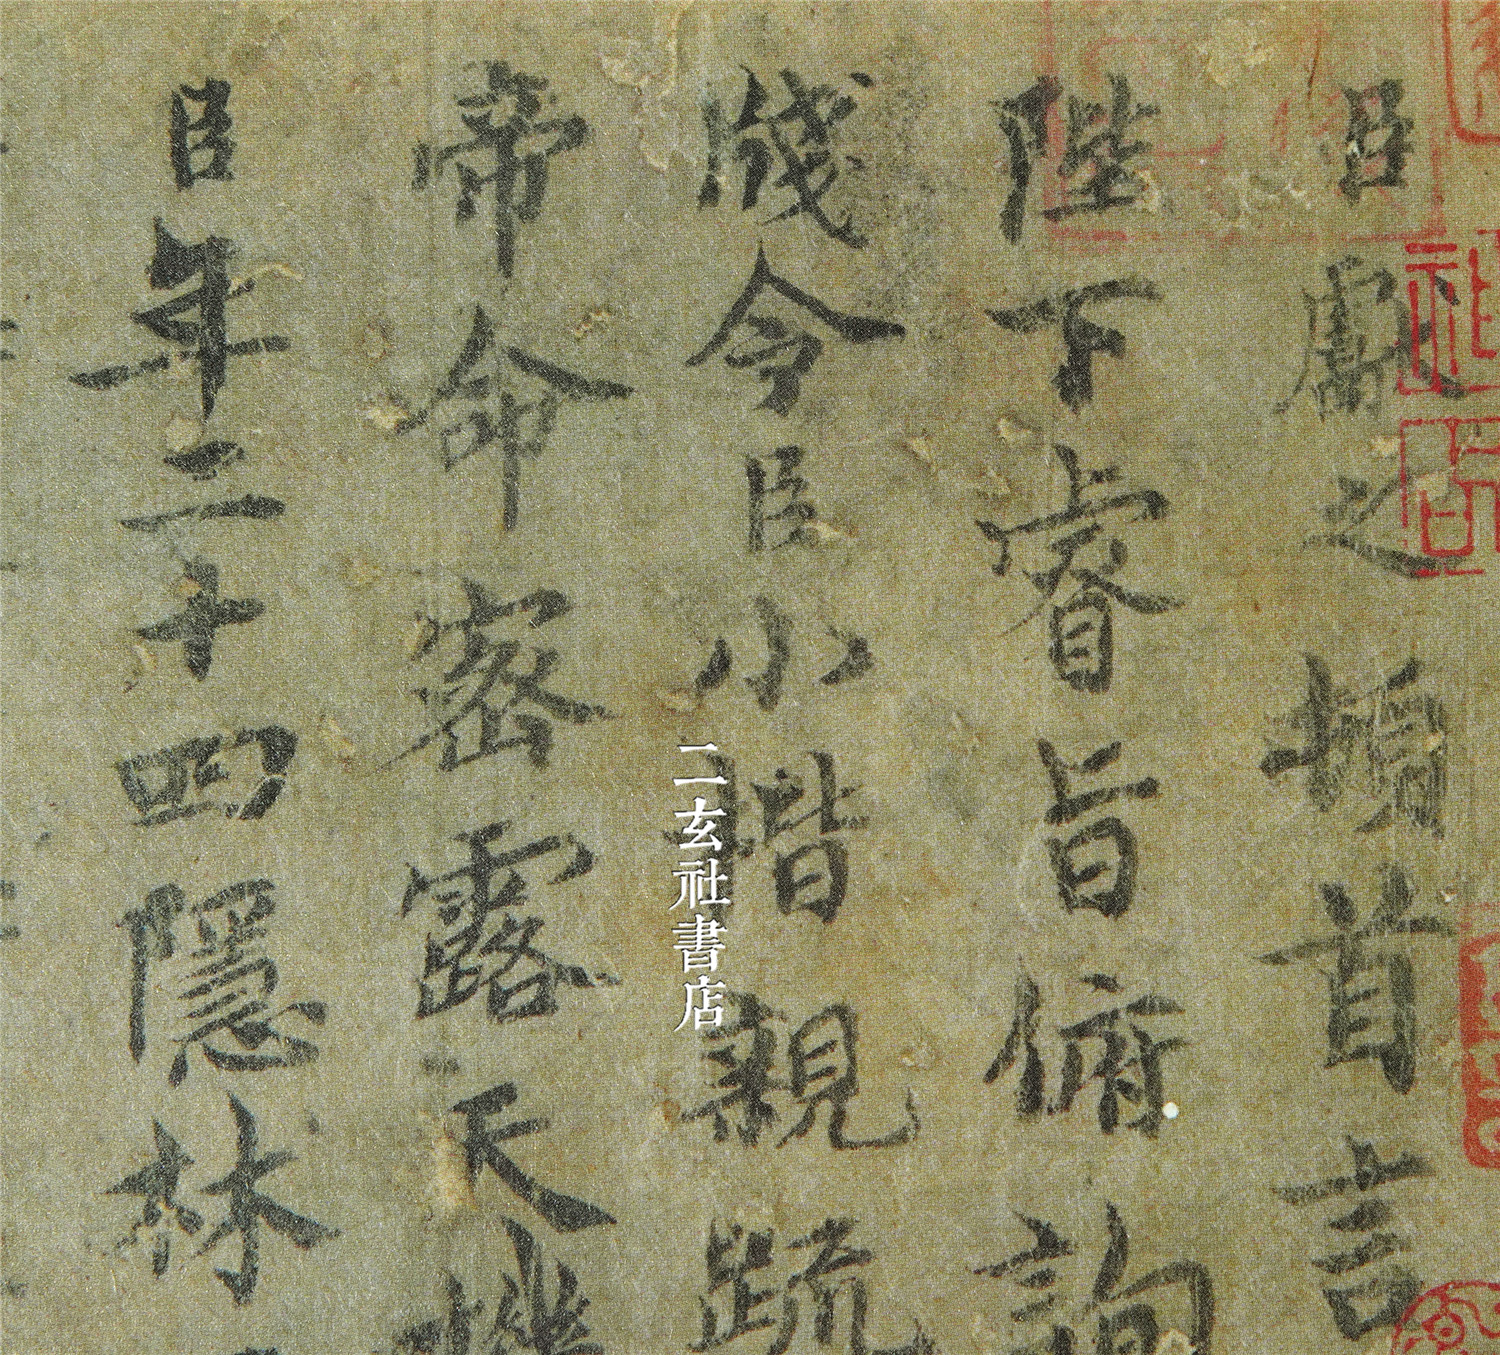 臣獻之首言
陛下睿旨俯詢
牋今臣小楷親疏
帝命密露天機
臣年二十四隱林
二玄社書店